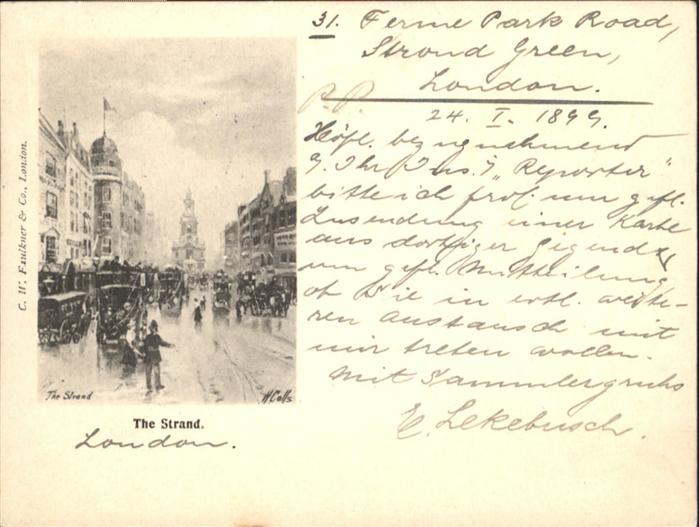 31. Ferme Park Road,
Stroud Green,
London.
P. P.
24. I. 1899.
Höfl. bezugnehmend
Ihr Ins. i/ „Reporter"
bitte ich um gefl.
Zusendung einer Karte
aus dortiger Gegend &
um gefl. Mittheilung,
ob Sie in evtl. weite-
ren Austausch mit
mir treten wollen.
Mit Sammlergruss
E. Lekebusch.
C. W. Faulkner & Co., London.
The Strand
The Strand.
London.